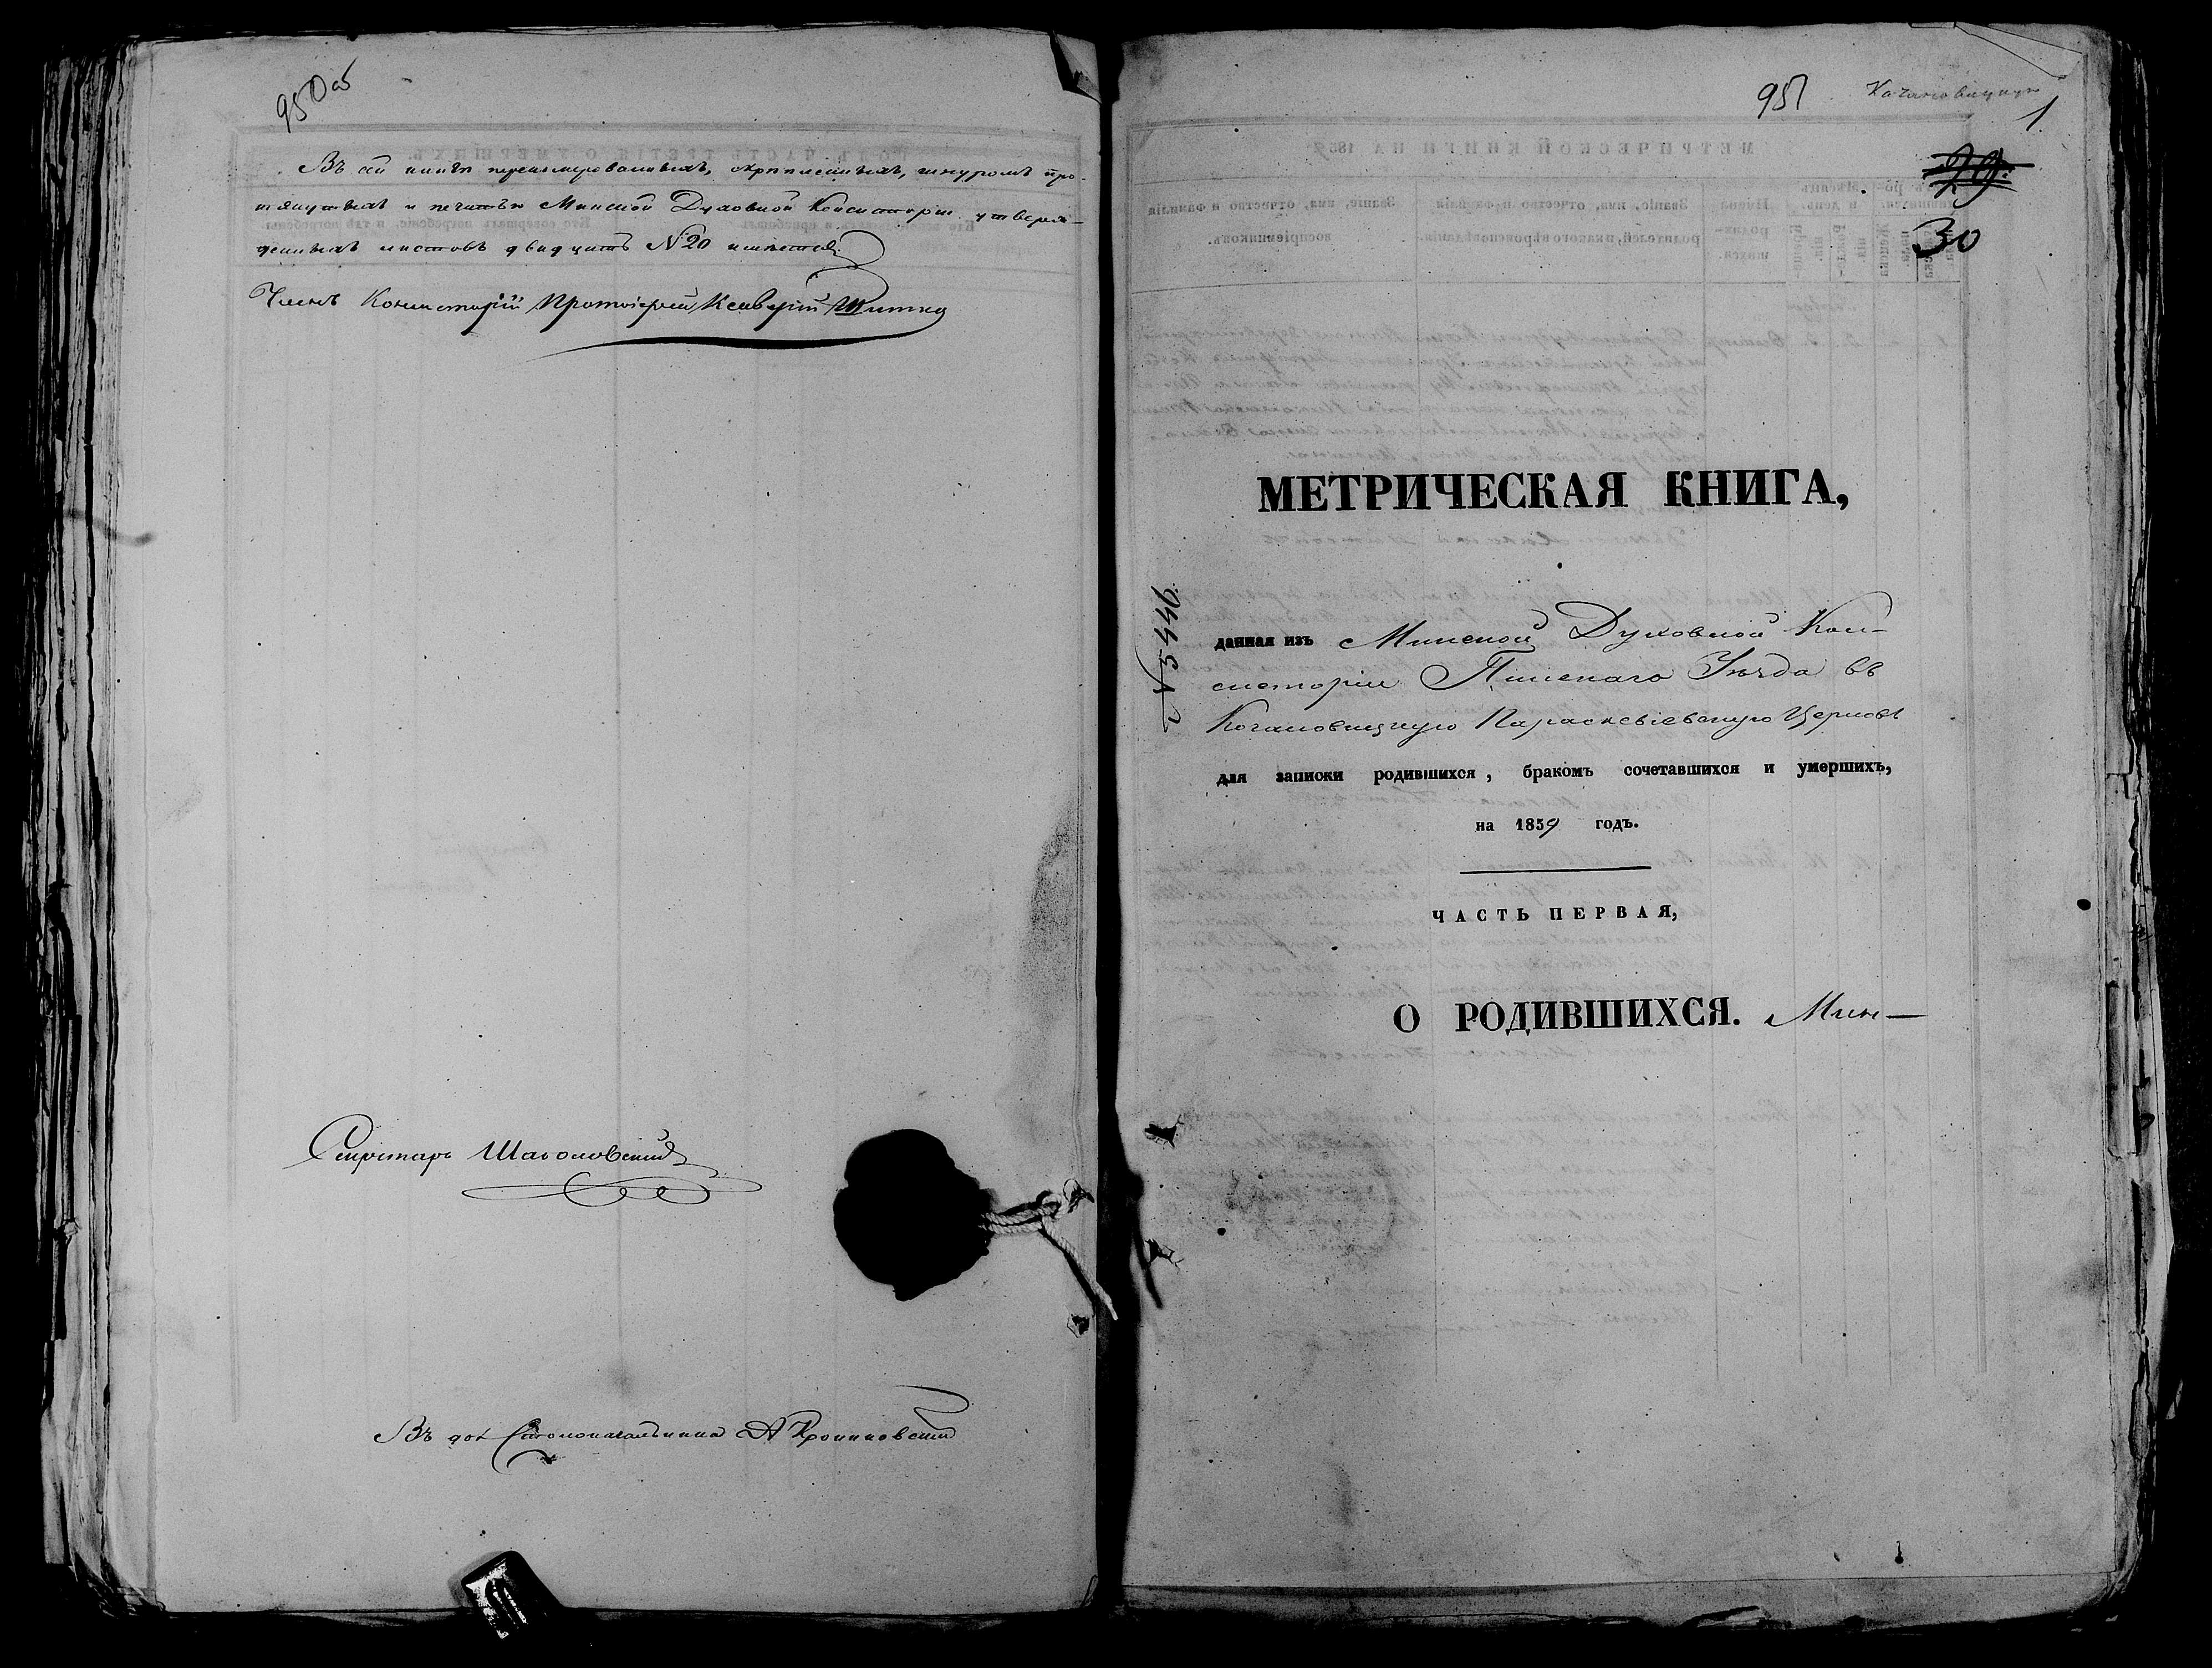 950 об
Въ сей книгѣ пронумерованныхъ, скрѣпленныхъ, шнуромъ про-
тянутыхъ и печатью Минской Духовной Консисторіи утверж-
денныхъ листовъ двадцать №20 имѣется
Членъ Консисторіи Протоіерей Ксаверій
Секретарь
Въ дол. Столоначальника А
951 Качановицкую
1.
29.
30
МЕТРИЧЕСКАЯ КНИГА,
№ 5446.
данная изъ Минской Духовной Кон-
систоріи Пинскаго Уѣзда въ
Кочановицкую Параскевіевскую Церковь
для записки родившихся, бракомъ сочетавшихся и умершихъ,
на 1859 годъ.
ЧАСТЬ ПЕРВАЯ,
О РОДИВШИХСЯ. Мин—